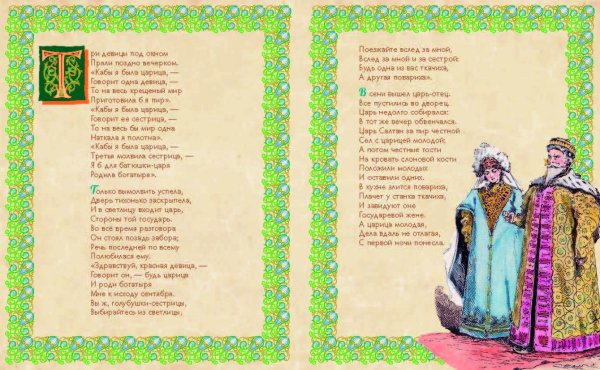 Три девицы под окном
Пряли поздно вечерком.
«Кабы я была царица, —
Говорит одна девица, —
То на весь крещеный мир
Приготовила б я пир».
«Кабы я была царица, —
Говорит ее сестрица, —
То на весь бы мир одна
Наткала я полотна».
«Кабы я была царица, —
Третья молвила сестрица, —
Я б для батюшки-царя
Родила богатыря».
Только вымолвить успела,
Дверь тихонько заскрыпела,
И в светлицу входит царь,
Стороны той государь.
Во всё время разговора
Он стоял позадь забора;
Речь последней по всему
Полюбилася ему.
«Здравствуй, красная девица, —
Говорит он, — будь царица
И роди богатыря
Мне к исходу сентября.
Вы ж, голубушки-сестрицы,
Выбирайтесь из светлицы,
Поезжайте вслед за мной,
Вслед за мной и за сестрой:
Будь одна из вас ткачиха,
А другая повариха».
В сени вышел царь-отец.
Все пустились во дворец.
Царь недолго собирался:
В тот же вечер обвенчался.
Царь Салтан за пир честной
Сел с царицей молодой;
А потом честные гости
На кровать слоновой кости
Положили молодых
И оставили одних.
В кухне злится повариха,
Плачет у станка ткачиха,
И завидуют оне
Государевой жене.
А царица молодая,
Дела вдаль не отлагая,
С первой ночи понесла.